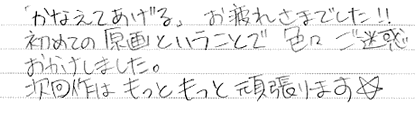 「かなえてあげる」お疲れさまでした!!
初めての原画ということで色々ご迷惑
おかけしました。
次回作はもっともっと頑張ります☆